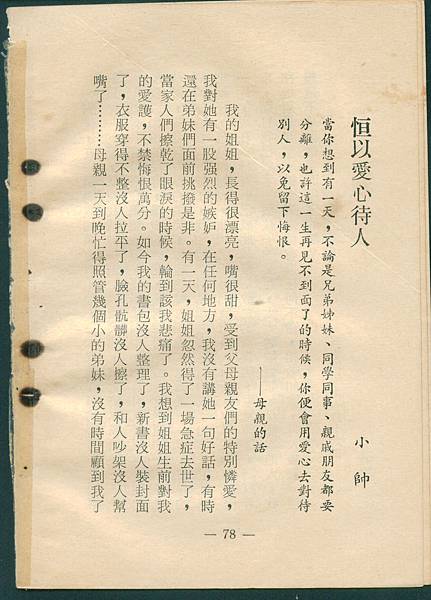 恒以愛心待人
小帥
當你想到有一天，不論是兄弟姊妹、同學同事、親戚朋友都要
分離，也許這一生再見不到面了的時候，你便會用愛心去對待
別人，以免留下悔恨。
——母親的話
我的姐姐，長得很漂亮，嘴很甜，受到父母親友們的特別憐愛，
我對她有一股强烈的嫉妒，在任何地方，我沒有講她一句好話，有時
還在弟妹們面前挑撥是非。有一天，姐姐忽然得了一場急症去世了，
當家人們擦乾了眼淚的時候，輪到該我悲痛了。我想到姐姐生前對我
的愛護，不禁悔恨萬分。如今我的書包沒人整理了，新書沒人裝封面
了，衣服穿得不整沒人拉平了，臉孔骯髒沒人擦了，和人吵架沒人幫
嘴了………母親一天到晚忙得照管幾個小的弟妹，沒有時間顧到我了
— 78 —